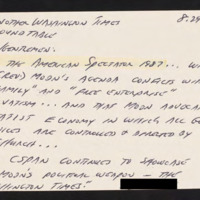 NOTHER WASHINGTON TIMES 8.29
OUNDTABLE
GENTLEMEN:
THE AMERICAN SPECTATOR 1987... W
(REV) MOON'S AGENDA CONFLICTS WI
FAMILY" AND "FREE ENTERPRISE"
VATISM... AND THAT MOON ADVOCA
ATIST ECONOMY IN WHICH ALL
ARE CONTROLLED & DIRECTED BY
CHURCH...
CSPAN CONTINUES TO SHOWCASE
MOON'S POLITICAL WEAPON - THE
HINGTON TIMES"